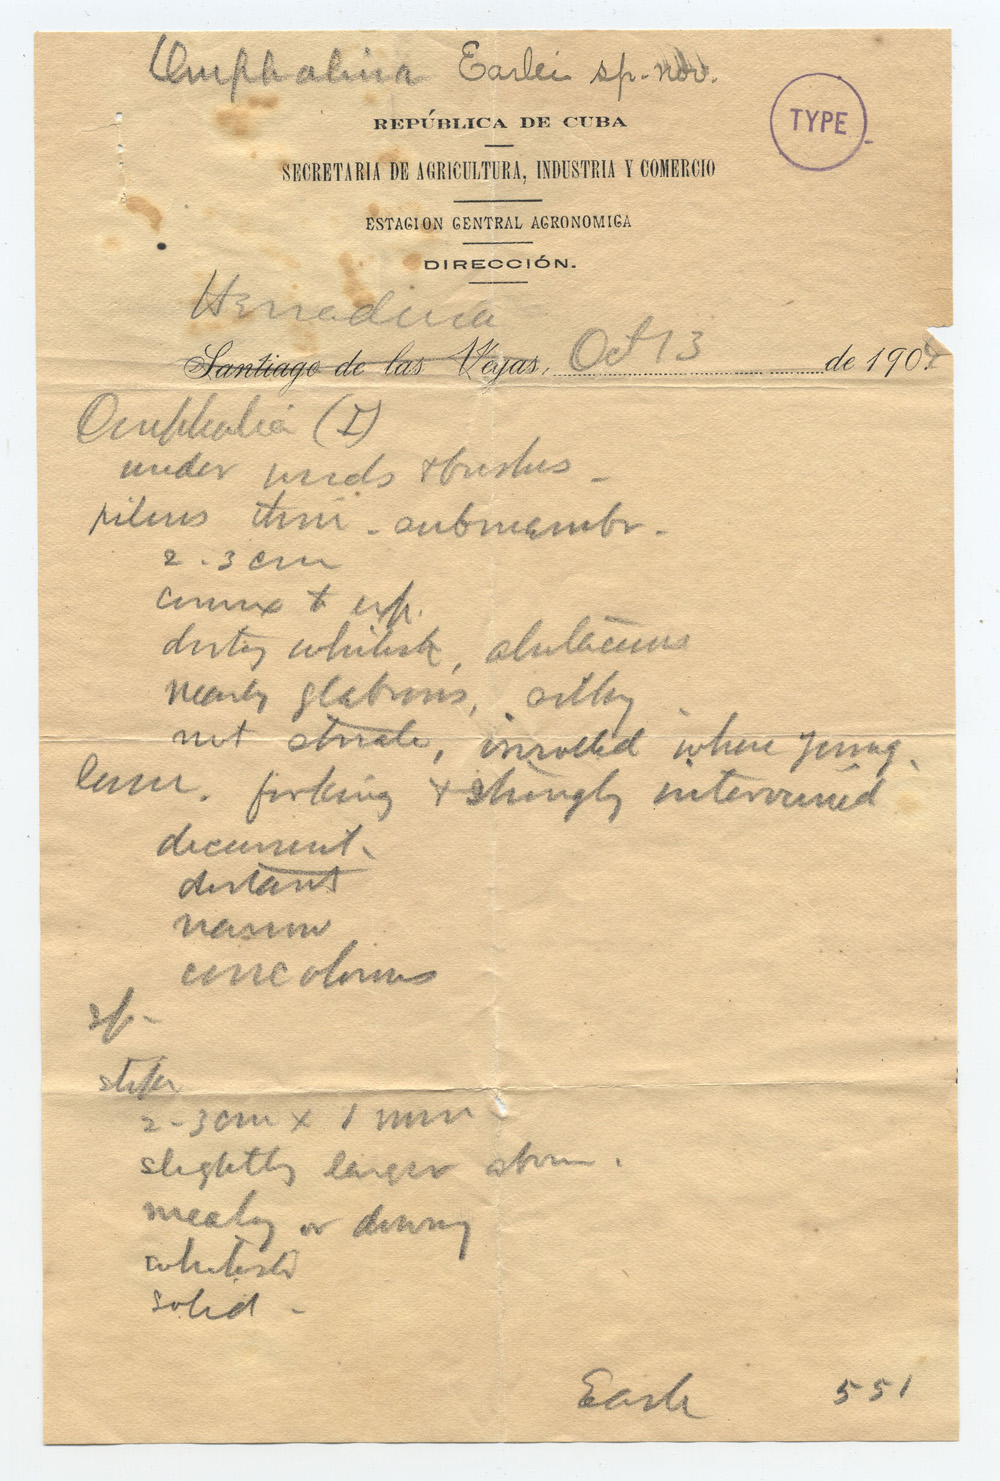 Omphalina Earlei sp. nov.
TYPE
REPÚBLICA DE CUBA
SECRETARIA DE AGRICULTURA, INDUSTRIA Y COMERCIO
ESTACION CENTRAL AGRONOMICA
DIRECCIÓN.
Herradura
Santiago de las Vegas, Oct 13 de 190
Omphalia (I)
under weeds & bushes -
pileus thin - submembr -
2-3 cm
convex to exp.
dirty whitish, alutaceous
nearly glabrous, silky
not striate, inrolled when young.
lam. forking & strongly interveined
decurrent.
distant
narrow
concolorous
sp -
stipe
2-3 cm x 1 mm
slightly larger above.
mealy or downy
whitish
solid -
Earle 551